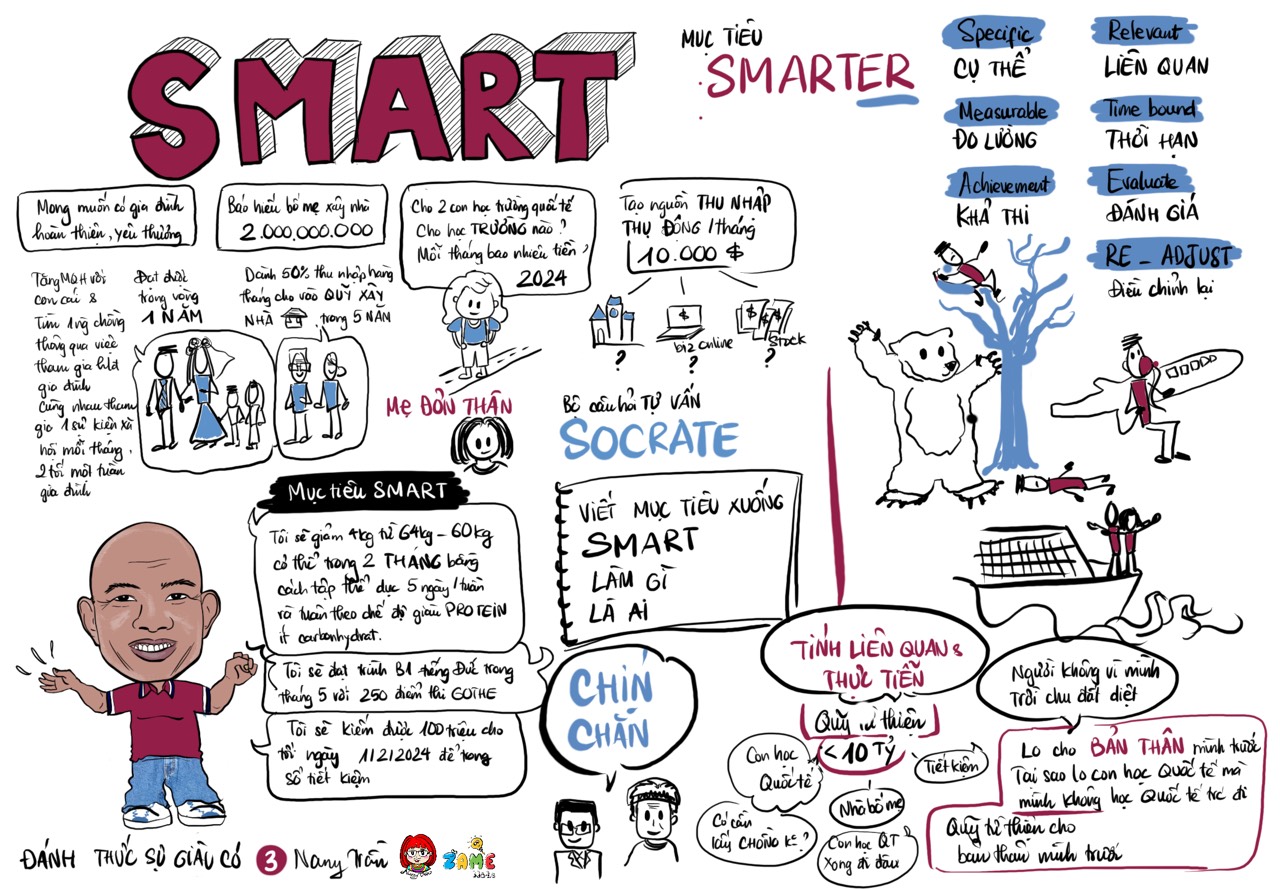 SMART
MỤC TIÊU
SMARTER
Specific
CỤ THỂ
Measurable
ĐO LƯỜNG
Achievement
KHẢ THI
Relevant
LIÊN QUAN
Time bound
THỜI HẠN
Evaluate
ĐÁNH GIÁ
RE - ADJUST
Điều chỉnh lại
Mong muốn có gia đình
hoàn thiện, yêu thương
Báo hiếu bố mẹ xây nhà
2.000.000.000
Cho 2 con học trường quốc tế
Cho học TRƯỜNG nào?
Mỗi tháng bao nhiêu tiền?
2024
Tạo nguồn THU NHẬP
THỤ ĐỘNG /tháng
10.000 $
Tăng MQH với
con cái &
Tìm 1 ng chồng
thông qua việc
tham gia
gia đình
cùng nhau tham
gia 1 sự kiện xã
hội mỗi tháng,
2 tối một tuần
gia đình
Đạt được
trong vòng
1 NĂM
Dành 50% thu nhập hàng
tháng cho vào QUỸ XÂY
NHÀ trong 5 NĂM
?
biz online
?
$ $ $
Stock
?
MẸ ĐƠN THÂN
Bộ câu hỏi TỰ VẤN
SOCRATE
Mục tiêu SMART
Tôi sẽ giảm 4kg từ 64kg - 60kg
cơ thể trong 2 THÁNG bằng
cách tập thể dục 5 ngày/tuần
và tuân theo chế độ giàu PROTEIN
ít carbonhydrat.
Tôi sẽ đạt trình B1 tiếng Đức trong
tháng 5 với 250 điểm thi GOTHE
Tôi sẽ kiếm được 100 triệu cho
tới ngày 11212024 để trong
sổ tiết kiệm
VIẾT MỤC TIÊU XUỐNG
SMART
LÀM GÌ
LÀ AI
CHÍN
CHẮN
TÍNH LIÊN QUAN &
THỰC TIỄN
Quỹ từ thiện
< 10 TỶ
Con học
Quốc tế
Tiết kiệm
Nhà bố mẹ
Có cần
lấy CHỒNG K?
Con học QT
xong đi đâu
Người không vì mình
Trời chu đất diệt
Lo cho BẢN THÂN mình trước
Tại sao lo con học Quốc tế mà
mình không học Quốc tế trc đi
Quỹ từ thiện cho
bản thân mình trước
ĐÁNH THỨC SỰ GIÀU CÓ 3 Nang Trần
ZAME